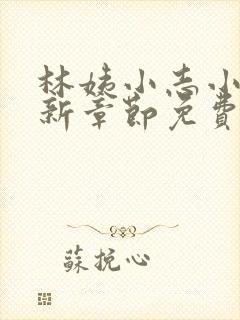 林姨小志小
新章節免費
蘇挽心